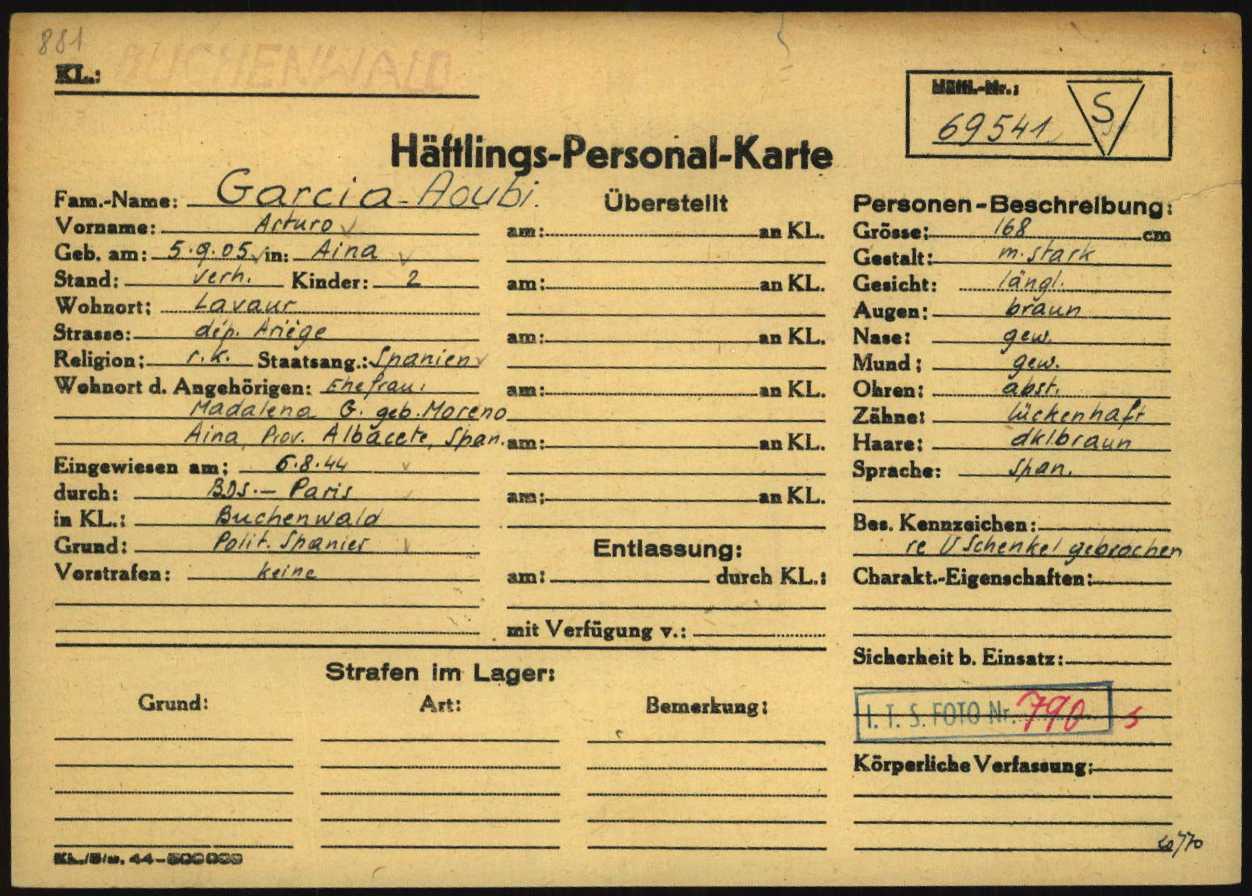 881
KL.: BUCHENWALD
Häftl.-Nr.:
69541 S
Häftlings-Personal-Karte
Fam.-Name: Garcia-Aoubi.
Vorname: Arturo
Geb. am: 5.9.05 in: Aina
Stand: verh. Kinder: 2
Wohnort: Lavaur
Strasse: dép. Ariège
Religion: r.k. Staatsang.: Spanien
Wohnort d. Angehörigen: Ehefrau:
Madalena G. geb. Moreno
Aina, Prov. Albacete, Span.
Eingewiesen am: 6.8.44
durch: BDS.- Paris
in KL.: Buchenwald
Grund: Polit. Spanier
Vorstrafen: keine
Überstellt
am: an KL.
am: an KL.
am: an KL.
am: an KL.
am: an KL.
am: an KL.
Entlassung:
am: durch KL.:
mit Verfügung v.:
Personen-Beschreibung:
Grösse: 168 cm
Gestalt: m.stark
Gesicht: längl.
Augen: braun
Nase: gew.
Mund: gew.
Ohren: abst.
Zähne: lückenhaft
Haare: dklbraun
Sprache: span.
Bes. Kennzeichen:
re U Schenkel gebrochen
Charakt.-Eigenschaften:
Sicherheit b. Einsatz:
I. T. S. FOTO Nr. 790 s
Körperliche Verfassung:
Strafen im Lager:
Grund: Art: Bemerkung: